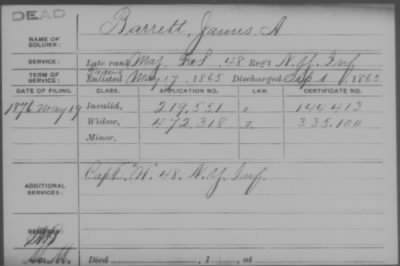 DEAD
NAME OF SOLDIER: Barrett, James A
SERVICE: Late rank Maj. F&S, 48 Reg't N.Y. Inf
TERM OF SERVICE: Enlisted May 17, 1865 Discharged Sep 1, 1865
DATE OF FILING. CLASS. APPLICATION NO. LAW. CERTIFICATE NO.
1876 May 19 Invalid, 219,551 144413
Widow, 472,318 335,100
Minor,
ADDITIONAL SERVICES: Capt. "H" 48. N.Y. Inf.
REMARKS:
Died , 1 , at